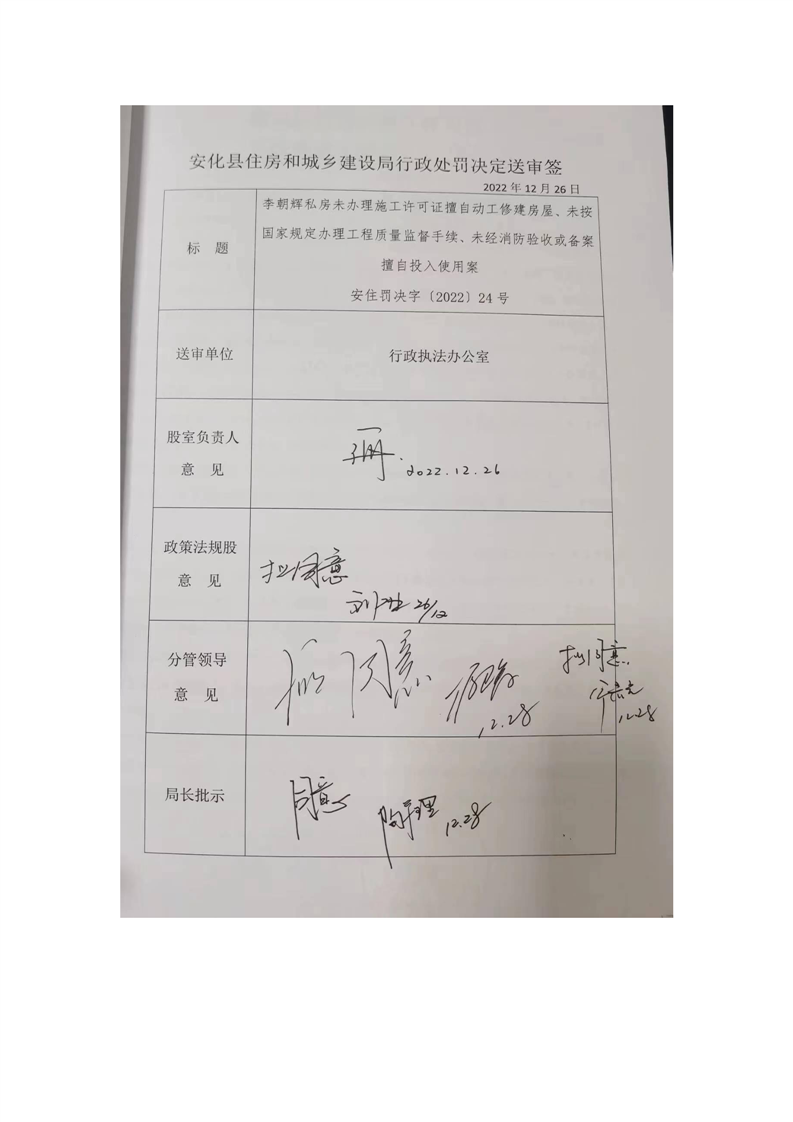 安化县住房和城乡建设局行政处罚决定送审签
2022 年 12 月 26 日
标 题
李朝辉私房未办理施工许可证擅自动工修建房屋、未按
国家规定办理工程质量监督手续、未经消防验收或备案
擅自投入使用案
安住罚决字〔2022〕24 号
送审单位
行政执法办公室
股室负责人
意 见
2022.12.26
政策法规股
意 见
拟同意
26/12
分管领导
意 见
拟同意
12.28
拟同意
12.28
局长批示
同意
12.28